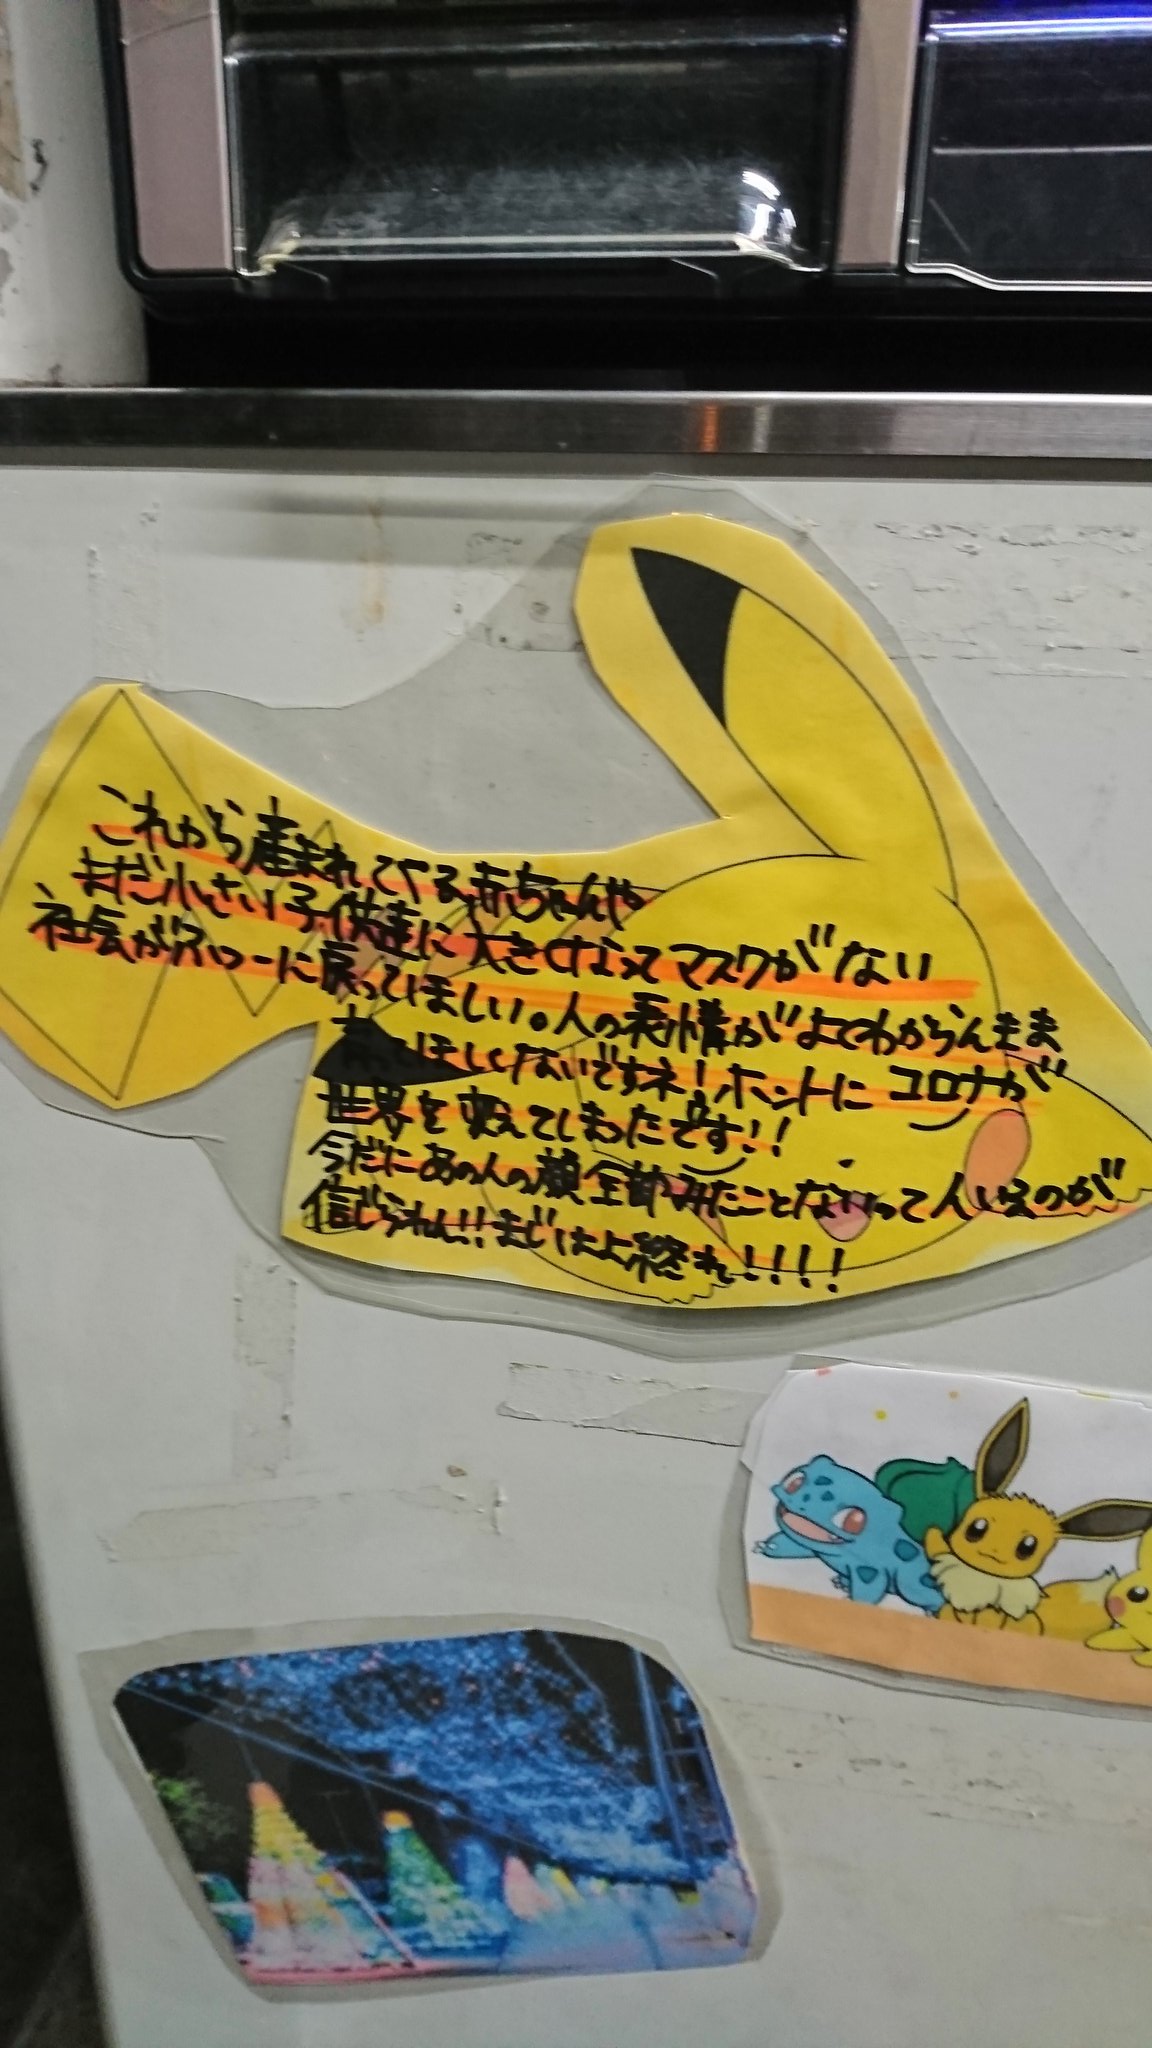 これから産まれてくる赤ちゃんや
まだ小さい子供達に大きくなってマスクがない
社会がふつーに戻ってほしい。人の表情がよくわからんまま
育ってほしくないですネ!ホントにコロナが
世界を変えてしまったです!!
今だにあの人の顔全部みたことないって人いえのが
信じられん!!まじはよ終れ!!!!